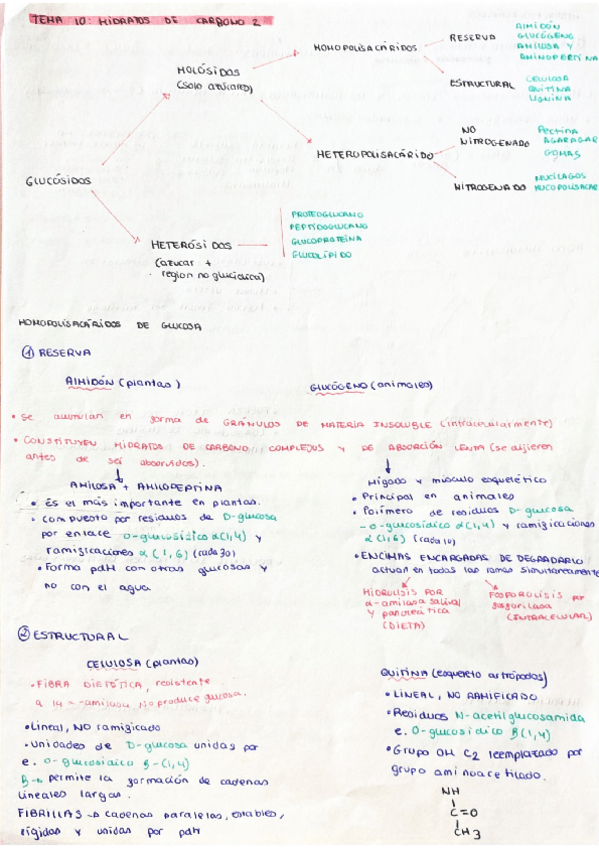 TEMA 10: HIDRATOS DE CARBONO 2
GLUCÓSIDOS
HOLÓSIDOS
(solo azúcard)
HOMOPOLISACÁRIDOS
RESERVA
AIMIDÓN
GLUCÓGENO
AMILOSA Y
AMINOPERTINA
ESTRUCTURAL
CELULOSA
QUITINA
LIGNINA
HETEROPOLISACÁRIDO
NO
NITROGENADO
Pectina
AGARAGAR
GOMAS
NITROGENADO
MUCÍLAGOS
MUCOPOLISACAR
HETERÓSIDOS
(azucar +
region no glucidica)
PROTEOGLUCANO
PEPTIDOGLUCANO
GLUCOPROTEÍNA
GLUCOLÍPIDO
HOMOPOLISACÁRIDOS DE GLUCOSA
① RESERVA
AIMIDÓN (plantas)
GLUCÓGENO (animales)
• Se acumulan en forma de GRÁNULOS DE MATERIA INSOLUBLE (intracelularmente)
• CONSTITUYEN HIDRATOS DE CARBONO COMPLEJOS Y DE ABSORCIÓN LENTA (se dijieren
antes de ser absorvidos).
AMILOSA + AMILOPECTINA
• Es el más importante en plantas.
• compuesto por residuos de D-glucosa
por enlace O-glucosídico α(1,4) y
ramificaciones α(1,6) (cada 30)
• Forma pdH con otras glucosas y
no con el agua
Hígado y músculo esquelético
• Principal en animales
• Polímero de residuos D-glucosa
-O-glucosídico α(1,4) y ramificaciones
α(1,6) (cada 10)
• ENCIMAS ENCARGADAS DE DEGRADARLO
actúan en todas las ramas simultaneamente
HIDRÓLISIS POR
α-amilasa salival
y pancreática
(DIETA)
FOSFOROLÍSIS por
fosforilasa
(INTRACELULAR)
② ESTRUCTURAL
CELULOSA (plantas)
• FIBRA DIETÉTICA, resistente
a la α-amilasa. No produce glucosa.
• Lineal, NO ramificado
• Unidades de D-glucosa unidas por
e. O-glucosídico β-(1,4)
β→ permite la formación de cadenas
lineales largas.
FIBRILLAS → cadenas paralelas, estables,
rígidas y unidas por pdH
QUITINA (esqueleto artrópodos)
• LINEAL, NO RAMIFICADO
• Residuos N-acetilglucosamida
e. O-glucosídico β(1,4)
• Grupo OH C2 reemplazado por
grupo amino acetilado.
NH
C=O
CH3